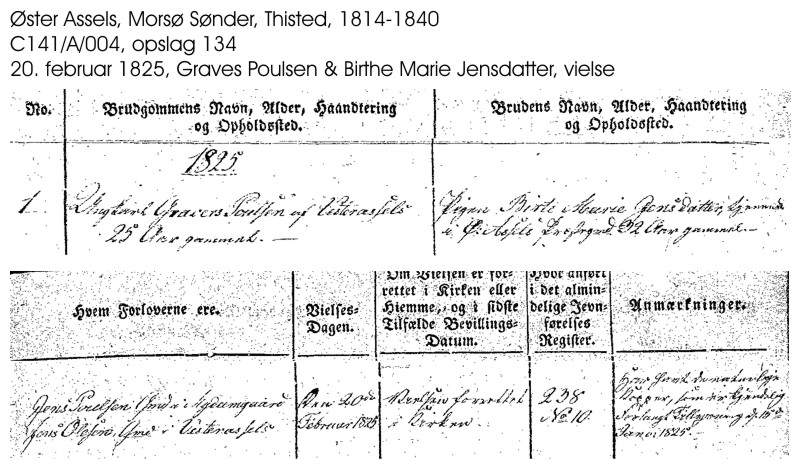 Øster Assels, Morsø Sønder, Thisted, 1814-1840
C141/A/004, opslag 134
20. februar 1825, Graves Poulsen & Birthe Marie Jensdatter, vielse
No.
Brudgommens Navn, Alder, Haandtering
og Opholdssted.
Brudens Navn, Alder, Haandtering
og Opholdssted.
1825
1
Ungkarl Gravers Poulsen af Vesterassels
25 Aar gammel. —
Pigen Birte Marie Jensdatter, tjenende
i Ø: Assels Præsegrd. 32 Aar gammel. —
Hvem Forloverne ere.
Vielses-
Dagen.
Om Vielsen er for-
rettet i Kirken eller
Hiemme, og i sidste
Tilfælde Bevillings-
Datum.
Hvor anført
i det almin-
delige Jevn-
førelses
Register.
Anmærkninger.
Jens Poulsen Gmd i
Jens Olesen, Gmd i Vesterassels
Den 20de
Februar 1825
Vielsen forrettet
i Kirken
238
No 10.
Har havt de naturlige
Kopper, som er kjendelig
1825.